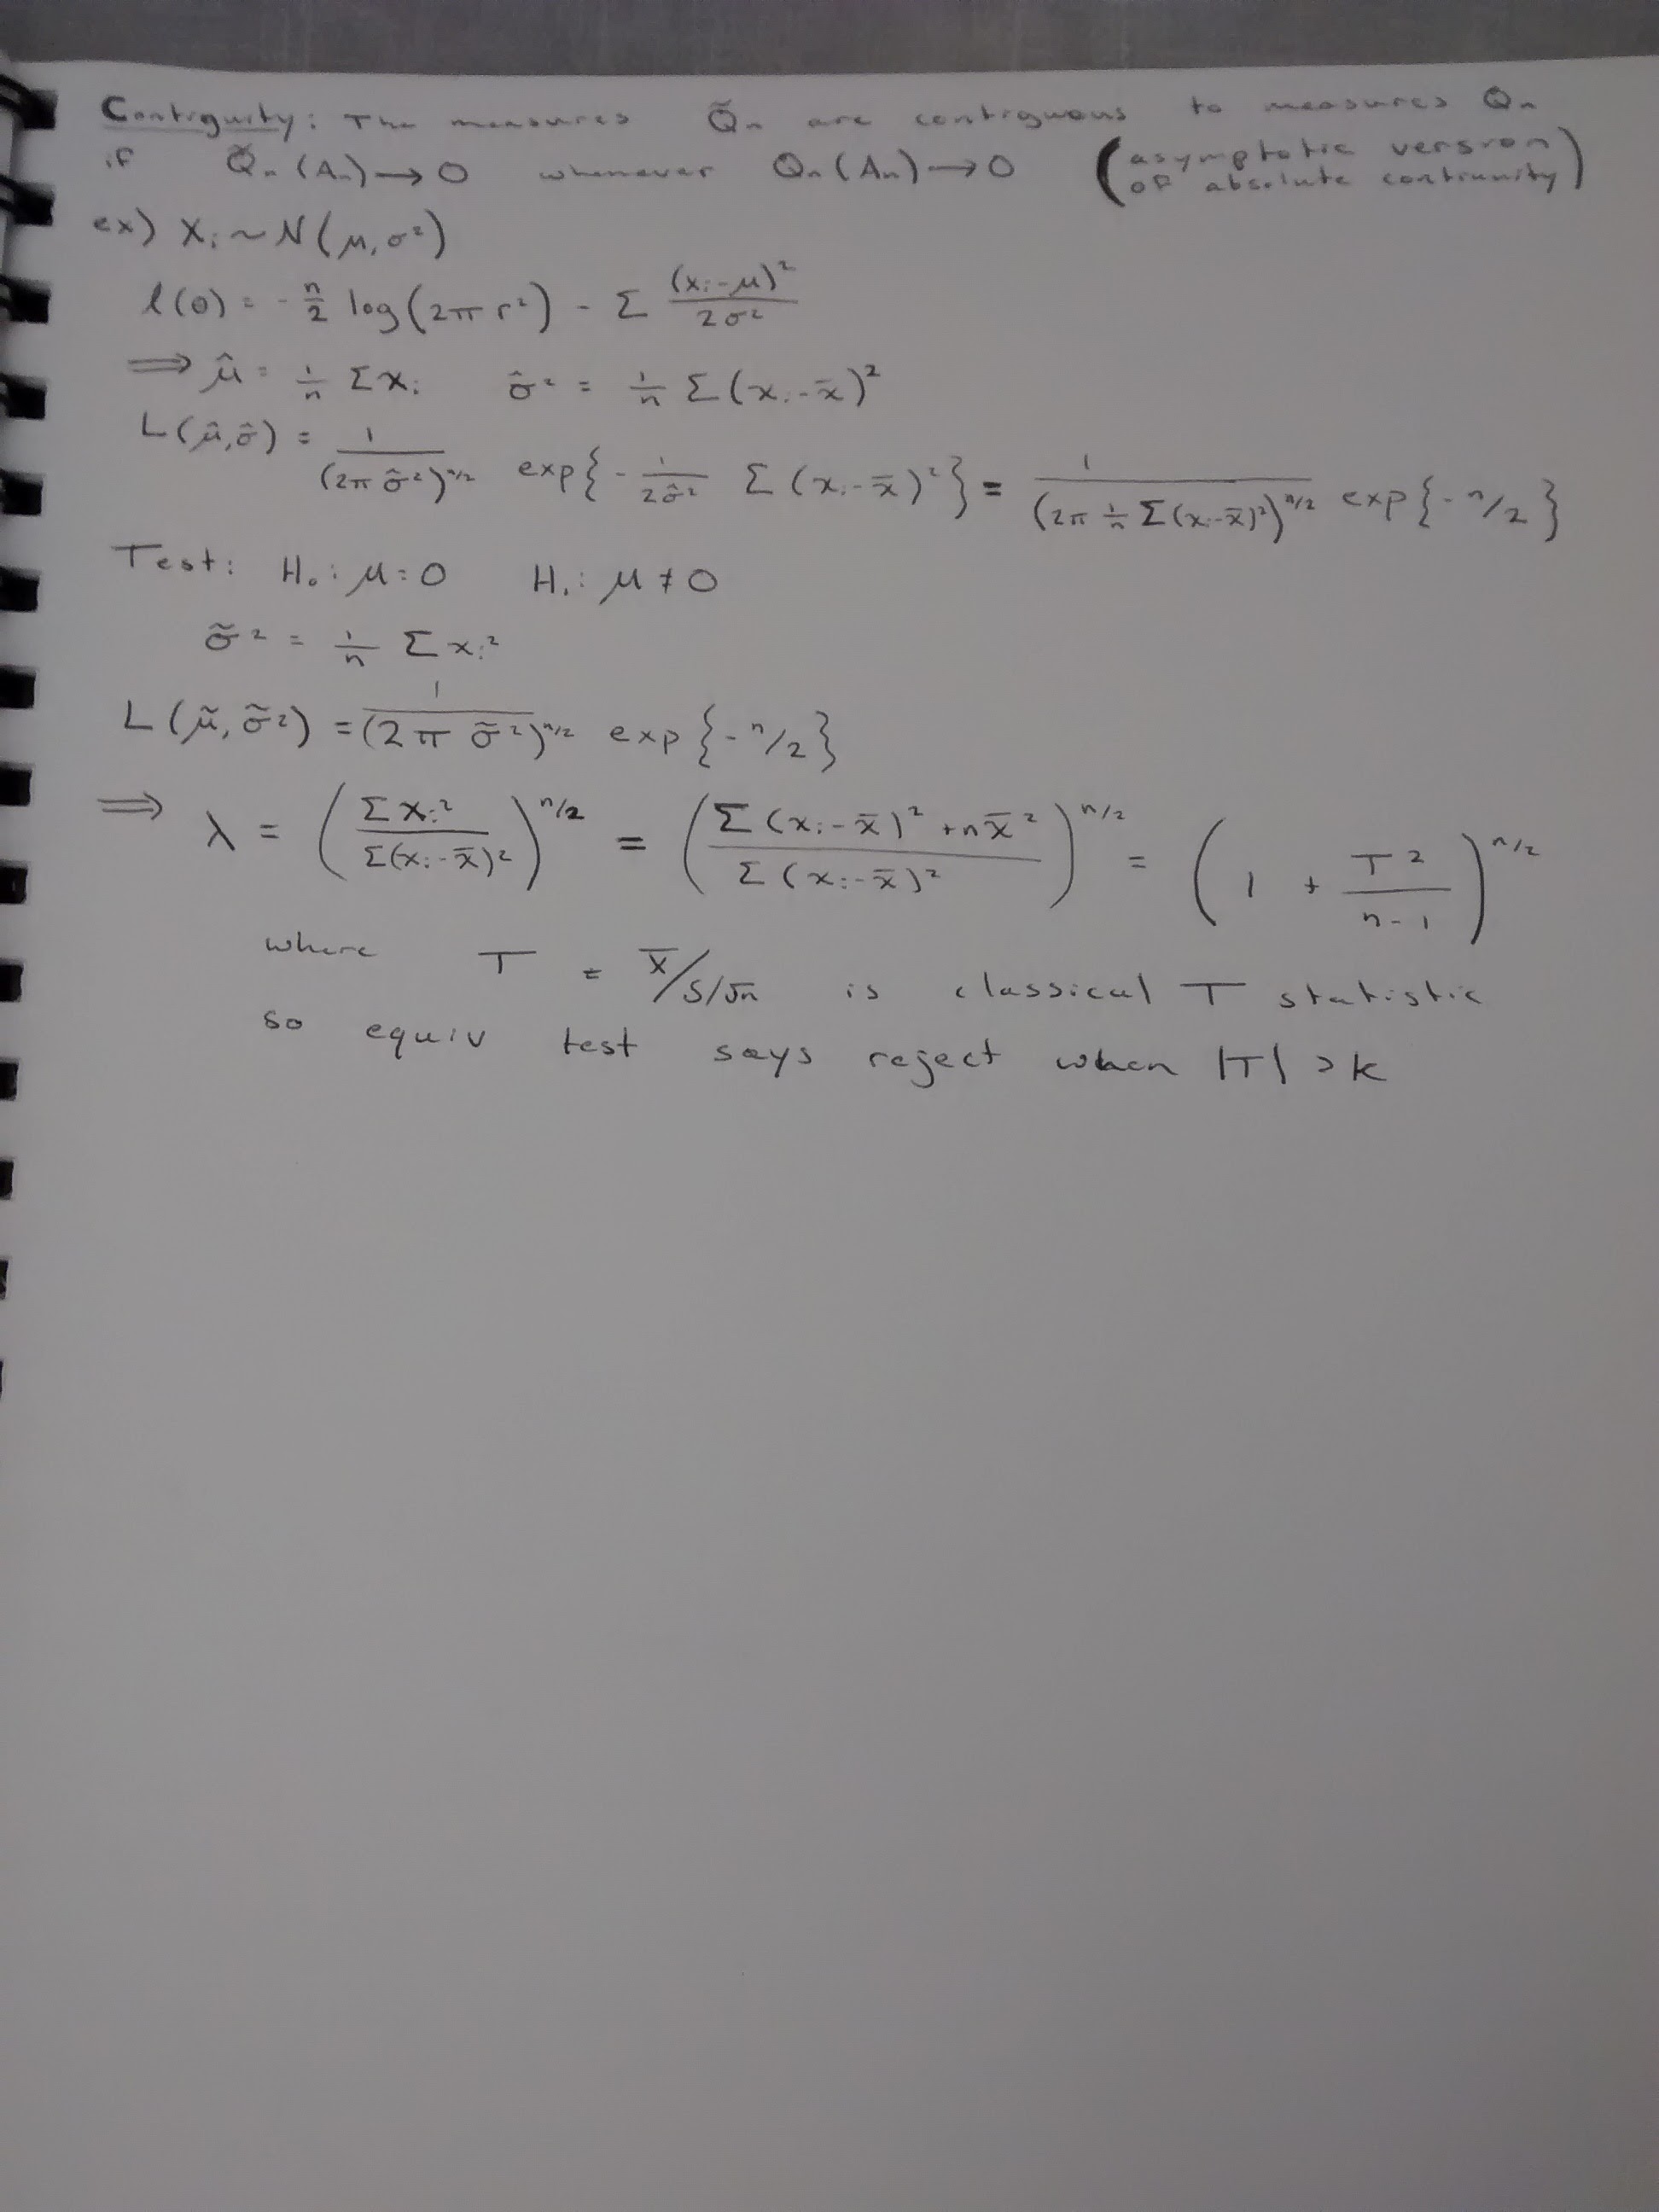 Contiguity: The measures Q̃ₙ are contiguous to measures Qₙ
if Q̃ₙ(Aₙ)→0 whenever Qₙ(Aₙ)→0 (asymptotic version of absolute continuity)
ex) Xᵢ ~ N(μ, σ²)
l(θ) = -n/2 log(2π σ²) - Σ (xᵢ-μ)²/2σ²
⟹ μ̂ = 1/n Σxᵢ σ̂² = 1/n Σ(xᵢ-x̄)²
L(μ̂,σ̂) = 1/(2π σ̂²)^(n/2) exp{- 1/2σ̂² Σ(xᵢ-x̄)²} = 1/(2π 1/n Σ(xᵢ-x̄)²)^(n/2) exp{-n/2}
Test: H₀: μ=0 H₁: μ≠0
σ̃² = 1/n Σxᵢ²
L(μ̃, σ̃²) = 1/(2π σ̃²)^(n/2) exp{-n/2}
⟹ λ = (Σxᵢ²/Σ(xᵢ-x̄)²)^(n/2) = ((Σ(xᵢ-x̄)²+nx̄²)/Σ(xᵢ-x̄)²)^(n/2) = (1 + T²/(n-1))^(n/2)
where T = x̄/S/√n is classical T statistic
so equiv test says reject when |T| > k